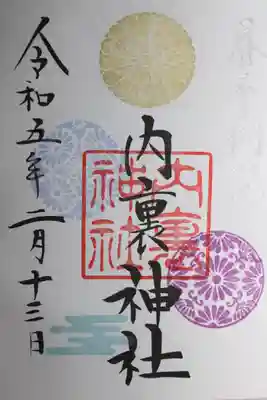 内裏神社
令和五年二月十三日
内裏
神社